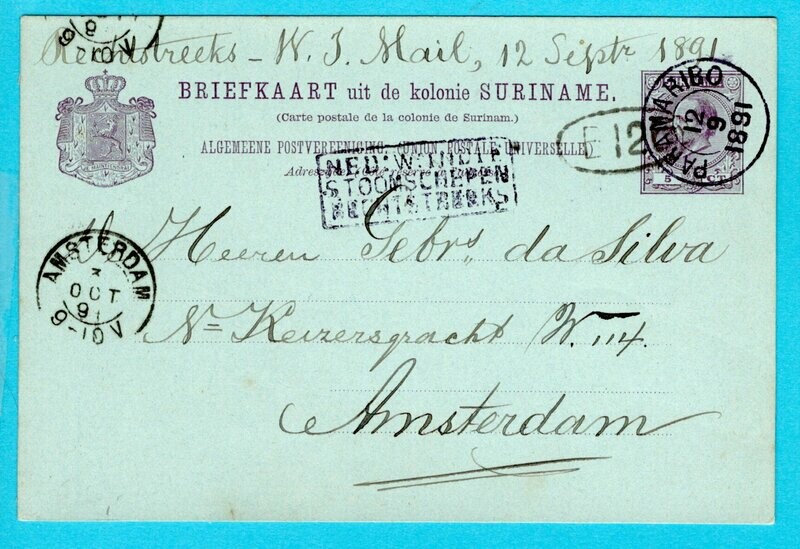 Rechtstreeks - W. I. Mail, 12 Septr 1891
BRIEFKAART uit de kolonie SURINAME.
(Carte postale de la colonie de Surinam.)
ALGEMEENE POSTVEREENIGING. (UNION POSTALE UNIVERSELLE)
NED: W: INDIE
STOOMSCHEPEN
RECHTSTREEKS
E 12
PARAMARIBO
12
9
1891
Heeren Gebrs. da Silva
AMSTERDAM
3
OCT
91
9-10V
Nn Keizersgracht W. 114.
Amsterdam